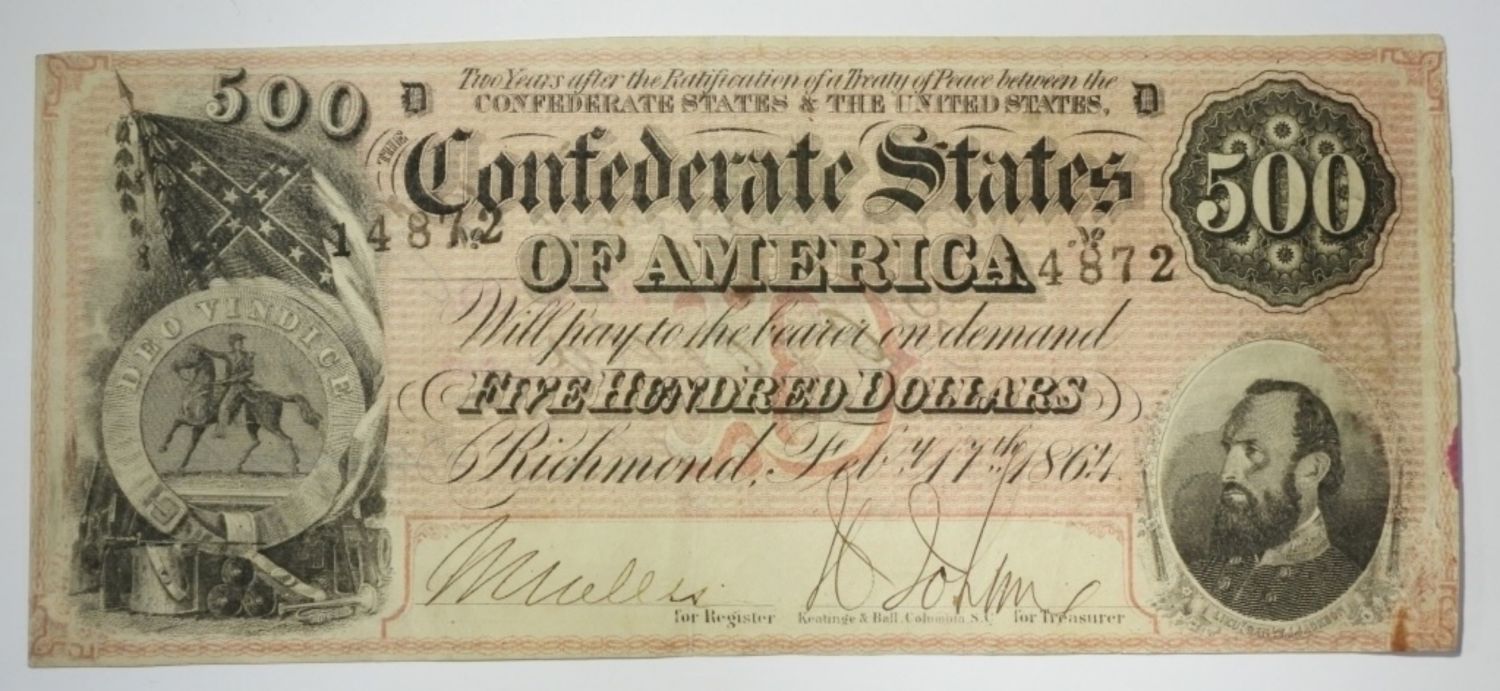 500
D
Two Years after the Ratification of a Treaty of Peace between the
D
CONFEDERATE STATES & THE UNITED STATES,
500
THE
Confederate States
14872
No
OF AMERICA
No
4872
Will pay to the bearer on demand
FIVE HUNDRED DOLLARS
Richmond, Feby 17th 1864
DEO VINDICE
for Register
Keatinge & Ball, Columbia S.C.
for Treasurer